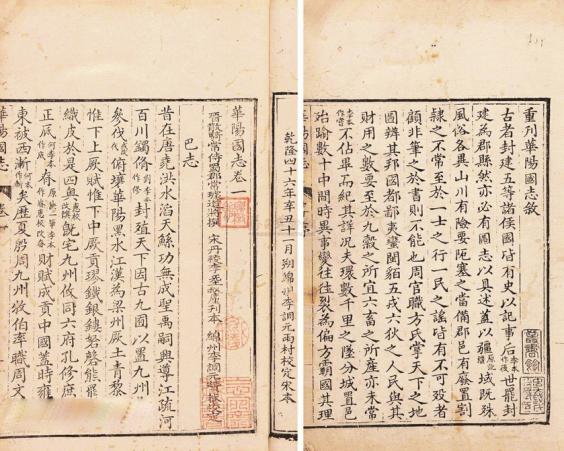 重刊華陽國志敘
古者封建五等諸侯國皆有史以記事後世罷封
建為郡縣然亦必有圖志以具述蓋以疆域既殊
風俗各異山川有險要阨塞之當備郡邑有廢置割
隸之不常至於一士之行一民之謠皆有不可殁者
顧非筆之於書則不能也周官職方氏掌天下之地
圖辨其邦國都鄙夷蠻閩貊五戎六狄之人民與其
財用之數要至於九穀之所宜六畜之所產亦未嘗
不佔畢而紀其詳况夫環數千里之墜分城置邑
殆踰數十中間時異事變往往裂為偏方霸國其理
乾隆四十六年辛丑十一月朔綿州李調元雨村校定宋本
華陽國志卷一
晉散騎常侍蜀郡常璩道將撰 宋丹稜李 刊本 綿州李調元
巴志
昔在唐堯洪水滔天鯀功無成聖禹嗣興導江疏河
百川蠲脩封殖天下因古九囿以置九州
參伐俯壤華陽黑水江漢為梁州厥土青黎
惟下上厥賦惟下中厥貢璆鐵銀鏤砮磬熊羆
織皮於是四奧既宅九州攸同六府孔修庶
正厎春財賦成貢中國蓋時雍
東被西漸矣歷夏殷周九州牧伯率職周文
華陽國志